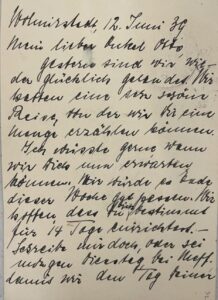 Wolmirstedt, 12. Juni 39
Mein lieber Onkel Otto
gestern sind wir wie-
der glücklich gelandet. Wir
hatten eine sehr schöne
Reise, von der wir Dir eine
Menge erzählen können.
Ich wüsste gerne wann
wir Dich nun erwarten
können. Wir würde es Ende
dieser Woche gut passen. Wir
hoffen dass Du bestimmt
für 14 Tage einrichtest. –
Schreibe mir doch, oder sei
morgen Dienstag bei
damit wir den Tag Deiner